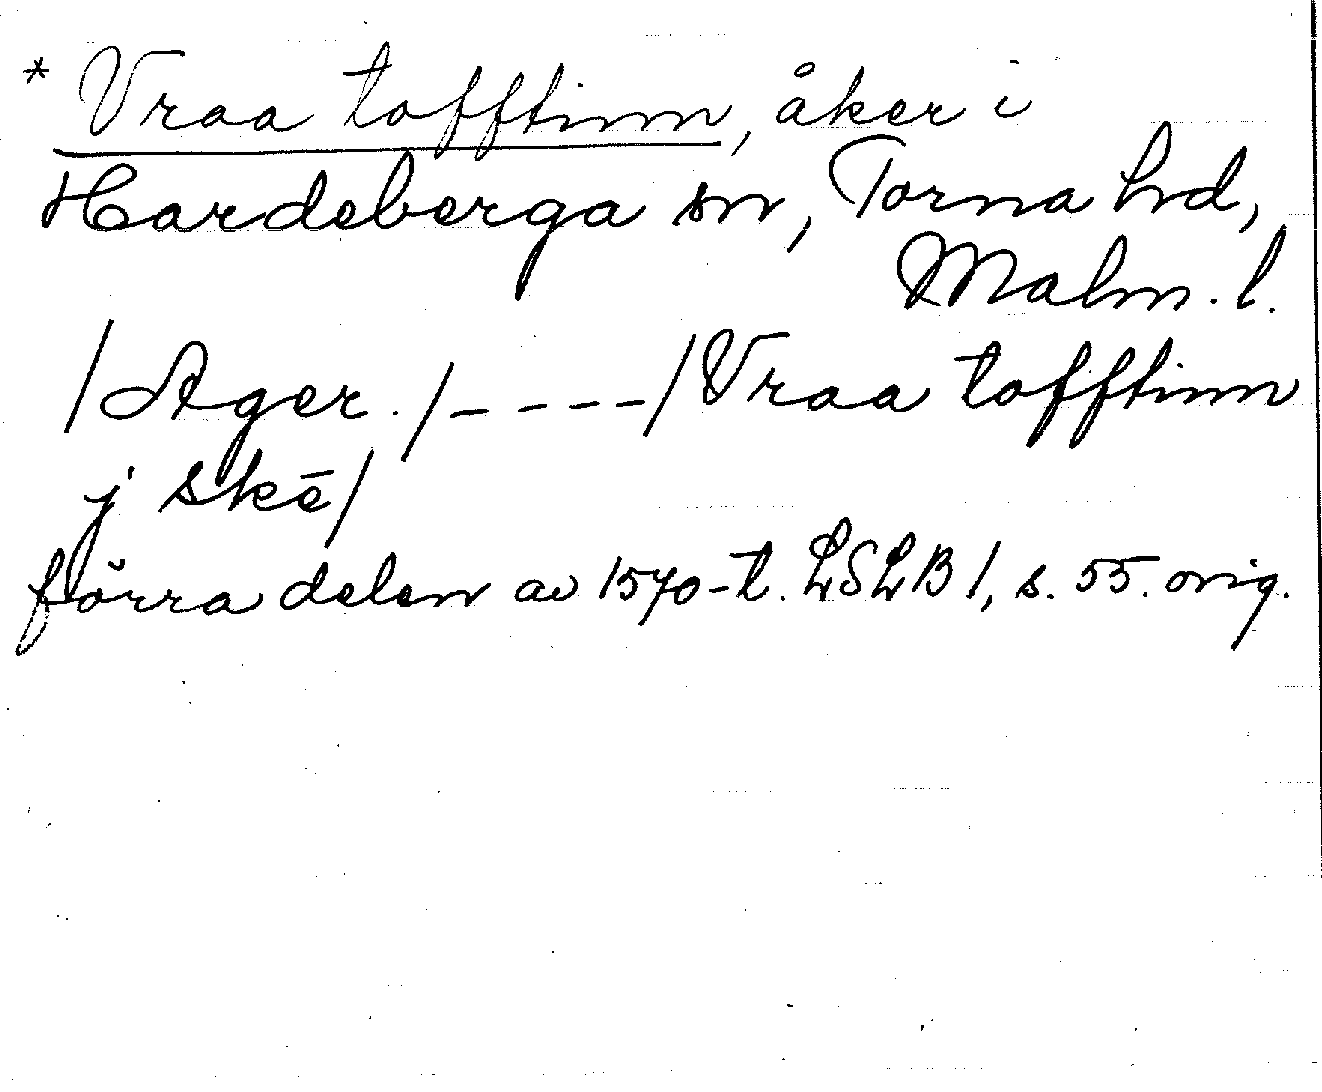 * Vraa tofftinn, åker i
Hardeberga sn, Torna hd,
Malm. l.
/Ager./----/Vraa tofftinn
j skē/
förra delen av 1570-t. LSLB 1, s. 55. orig.